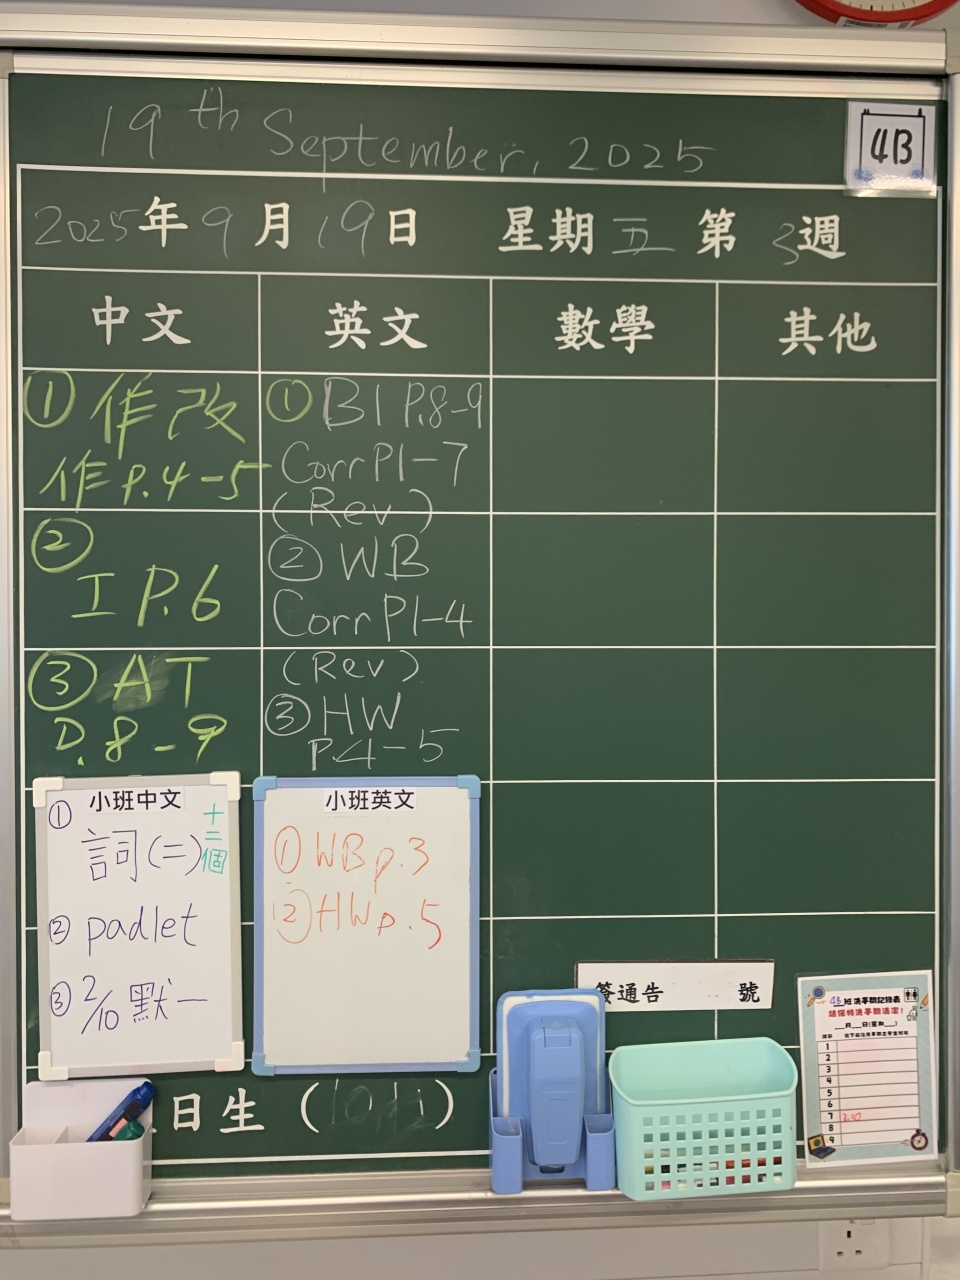 19th September, 2025
4B
2025年9月19日 星期五 第3週
中文 英文 數學 其他
① 作改
作 P.4-5
② 工 P.6
③ AT
P.8-9
① B1 P.8-9
Corr P1-7
(Rev)
② WB
Corr P1-4
(Rev)
③ HW
P.4-5
小班中文
① 詞(二) 十二個
② padlet
③ 2/10 默一
小班英文
① WB p.3
② HW p.5
簽通告 號
日生 ( )
4B班洗手間記錄表
請保持洗手間清潔！
月 日(星期 )
1
2
3
4
5
6
7
8
9